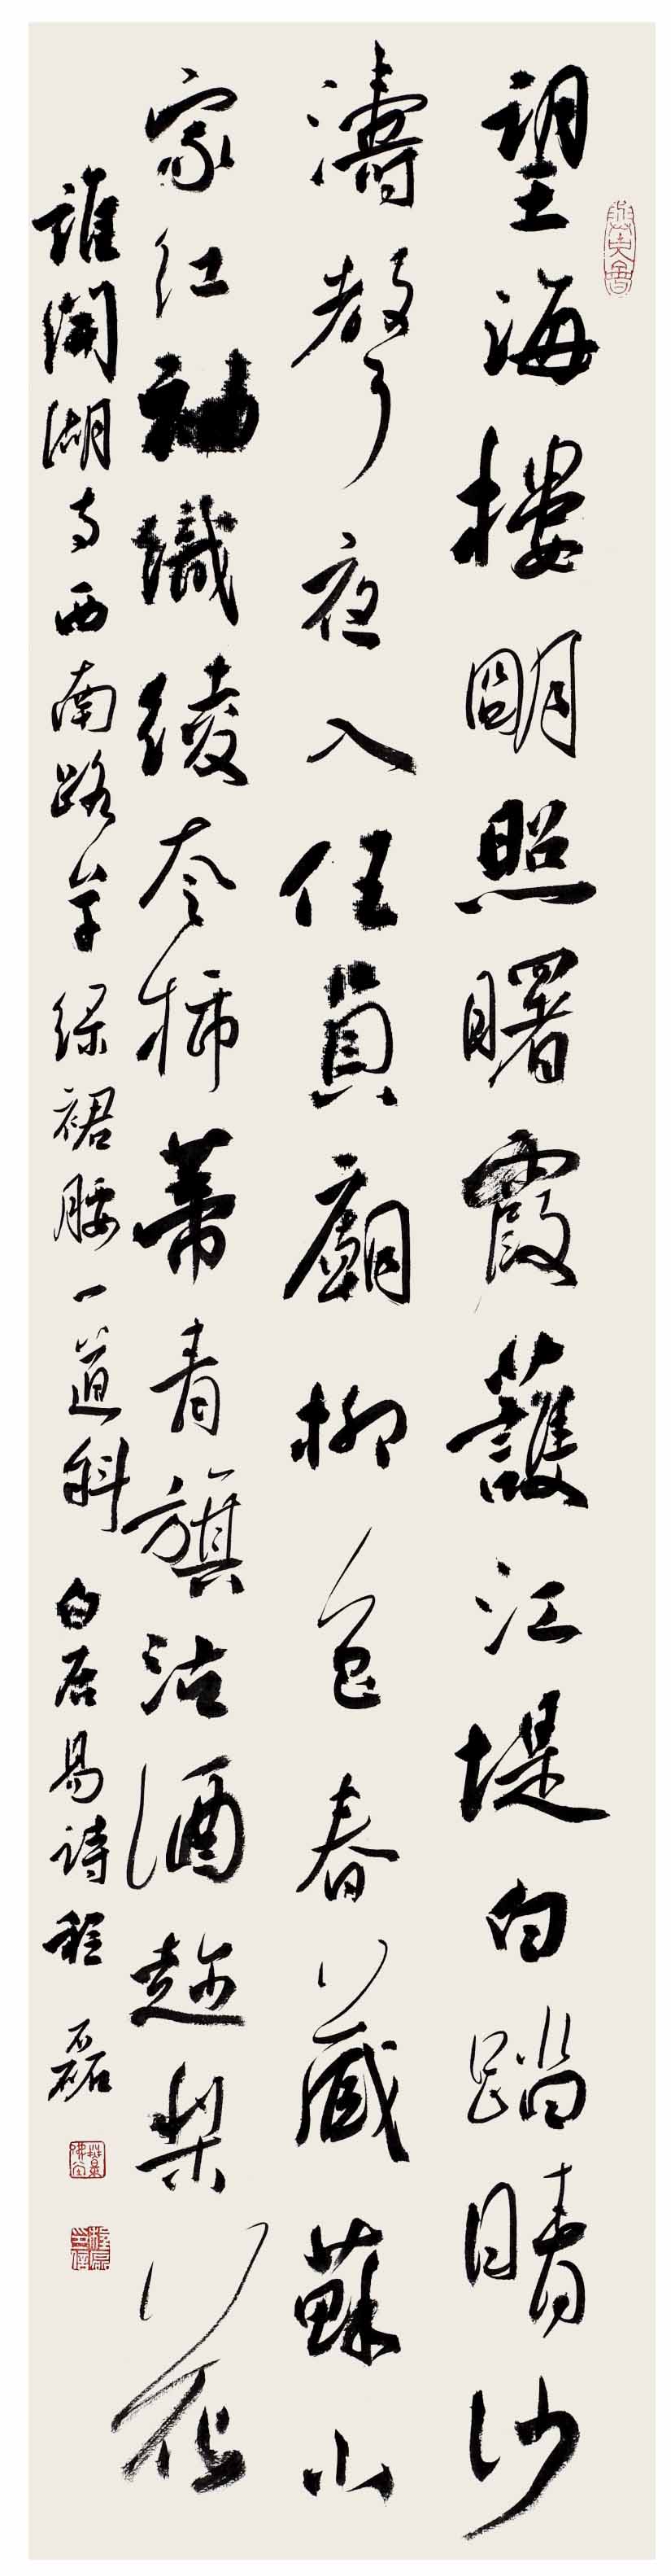 望海樓明照曙霞護江堤白踏晴沙
濤聲夜入伍員廟柳色春藏蘇小
家紅袖織綾夸柿蒂青旗沽酒趁梨花
誰開湖寺西南路草綠裙腰一道斜 白居易詩 程磊